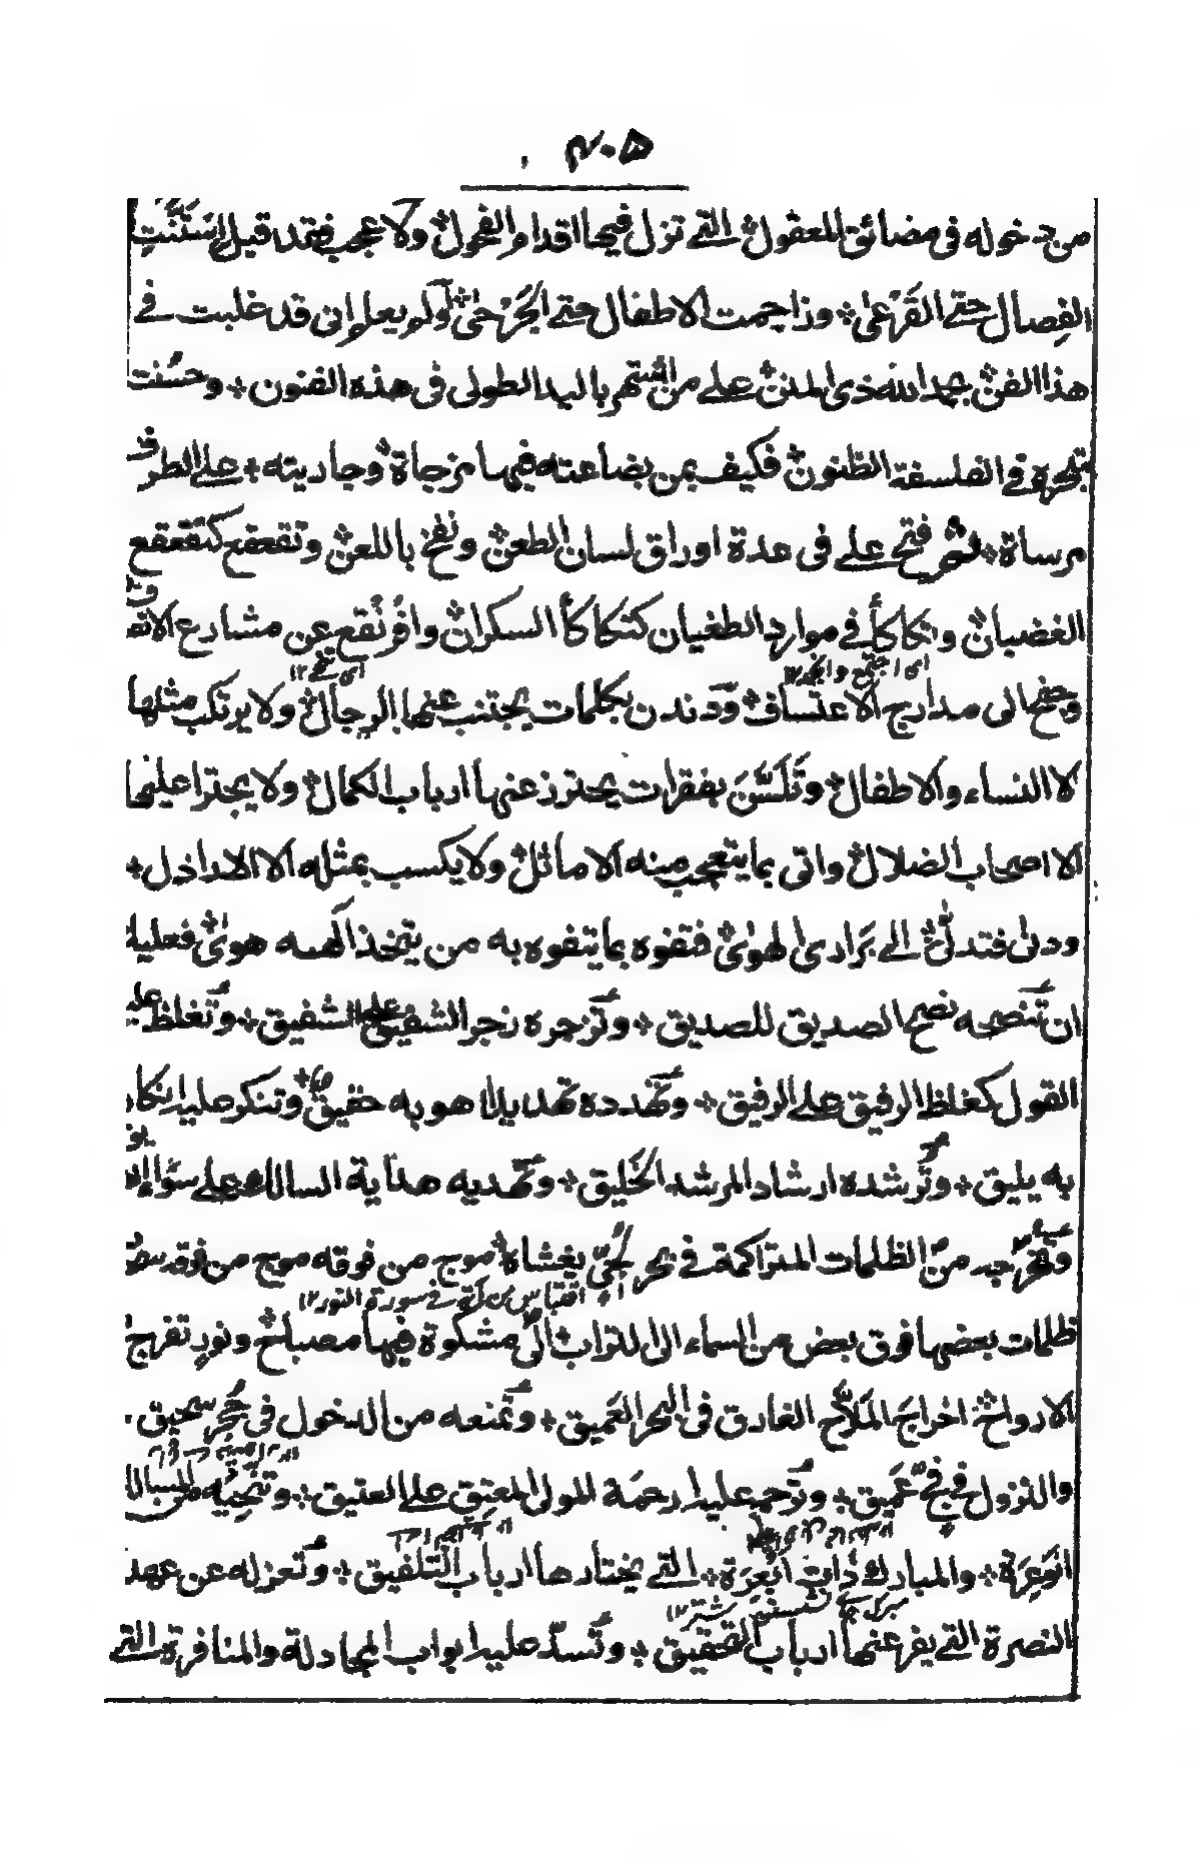 ٣٠٥
من دخوله فى مضائق المعقول التے تزل فيها اقدام الفحول ولا عجب فقد قيل استنت
الفصال حتے القَرْعٰى وزاحمت الاطفال حتے الجَرْحٰى أولم يعلم انى قد غلبت فے
هذا الفن بحمد الله ذى المنن علے من اشتهر باليد الطولى فى هذه الفنون وحسنت
بتبحره فے الفلسفة الظنون فكيف بمن بضاعته فيها مزجاة وجاريته علے الطرف
مرساة ثم فتح علے فى عدة اوراق لسان الطعن ونفخ باللعن وتقعقع كتقعقع
الغضبان وتكاكأ فے موارد الطغيان كتكاكأ السكران وافرنقع عن مشارع الاتفاق
اى اجتمع اى تنحے ١٢
وجنح الى مدارج الاعتساف ودندن بكلمات يجتنب عنها الرجال ولا يرتكب مثلها
لا النساء والاطفال وتَلَسَّنَ بفقرات يحترز عنها ارباب الكمال ولا يجترا عليها
الا اصحاب الضلال واتى بما يتعجب منه الاماثل ولا يكسب بمثله الا الاراذل
ودنى فتدلّٰى الے بَرَارى الهوٰى فتفوه بما يتفوه به من يتخذ الٰهه هوٰى فعليك
ان تنصحه نصح الصديق للصديق وتزجره زجر الشفيق علے الشفيق وتغلظ عليه
القول كغلظ الرفيق علے الرفيق وتهدده تهديدا هو به حقيق وتنكر عليه انكارا
به يليق وترشده ارشاد المرشد الخليق وتهديه هداية السالك علے سواء
وتخرجه من الظلمات المتراكمة فے بحر لُجّىّ يغشاه موج من فوقه موج من فوقه سحاب
اقتباس من آية فے سورة النور ١٢
ظلمات بعضها فوق بعض من السماء الى التراب الى مشكوة فيها مصباح ونور تفرج
الارواح اخراجَ المَلاّح الغارق فى البحر العميق وتمنعه من الدخول فى جُحر سحيق
والنزول فے فجّ عَميق وترحم عليه رحمة المولى المعتق علے العتيق وتنجيه من المسالك
الوَعِرَة والمبارك ذات البَعْرَة التے يختارها ارباب التلفيق وتعزله عن عهد
النصرة التے يفر عنها ارباب التحقيق وتسدّ عليه ابواب المجادلة والمنافرة التے